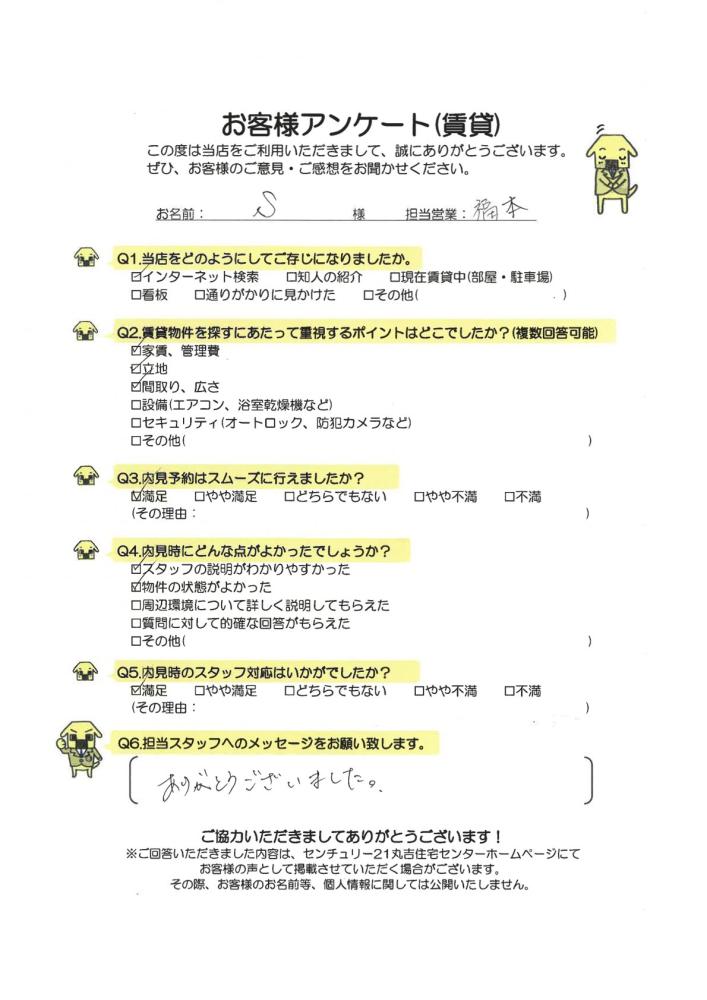 お客様アンケート(賃貸)
この度は当店をご利用いただきまして、誠にありがとうございます。
ぜひ、お客様のご意見・ご感想をお聞かせください。
お名前： S 様 担当営業：福本
Q1.当店をどのようにしてご存じになりましたか。
☑インターネット検索 □知人の紹介 □現在賃貸中(部屋・駐車場)
□看板 □通りがかりに見かけた □その他( )
Q2.賃貸物件を探すにあたって重視するポイントはどこでしたか？(複数回答可能)
☑家賃、管理費
☑立地
☑間取り、広さ
□設備(エアコン、浴室乾燥機など)
□セキュリティ(オートロック、防犯カメラなど)
□その他( )
Q3.内見予約はスムーズに行えましたか？
☑満足 □やや満足 □どちらでもない □やや不満 □不満
(その理由： )
Q4.内見時にどんな点がよかったでしょうか？
☑スタッフの説明がわかりやすかった
☑物件の状態がよかった
□周辺環境について詳しく説明してもらえた
□質問に対して的確な回答がもらえた
□その他( )
Q5.内見時のスタッフ対応はいかがでしたか？
☑満足 □やや満足 □どちらでもない □やや不満 □不満
(その理由： )
Q6.担当スタッフへのメッセージをお願い致します。
ありがとうございました。
ご協力いただきましてありがとうございます！
※ご回答いただきました内容は、センチュリー21丸吉住宅センターホームページにて
お客様の声として掲載させていただく場合がございます。
その際、お客様のお名前等、個人情報に関しては公開いたしません。